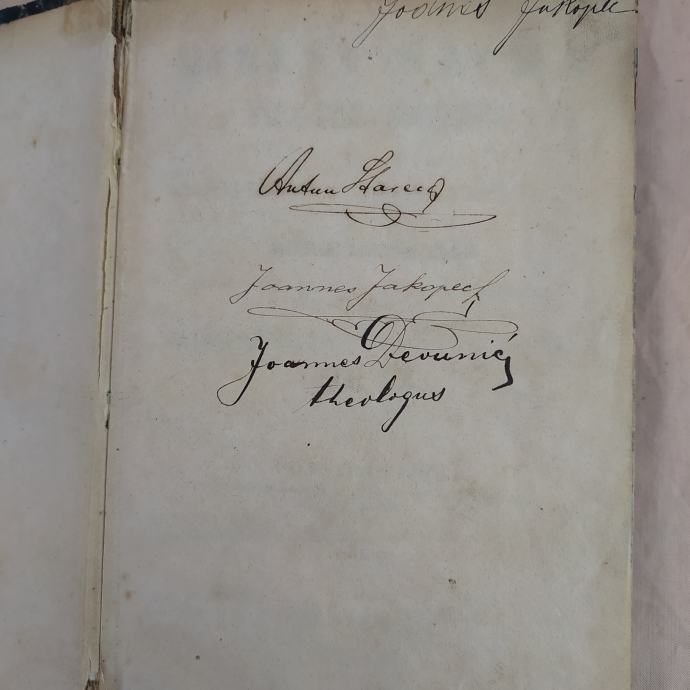 Joannes Jakopec
Antun
Joannes Jakopec
Joannes Devunić
theologus